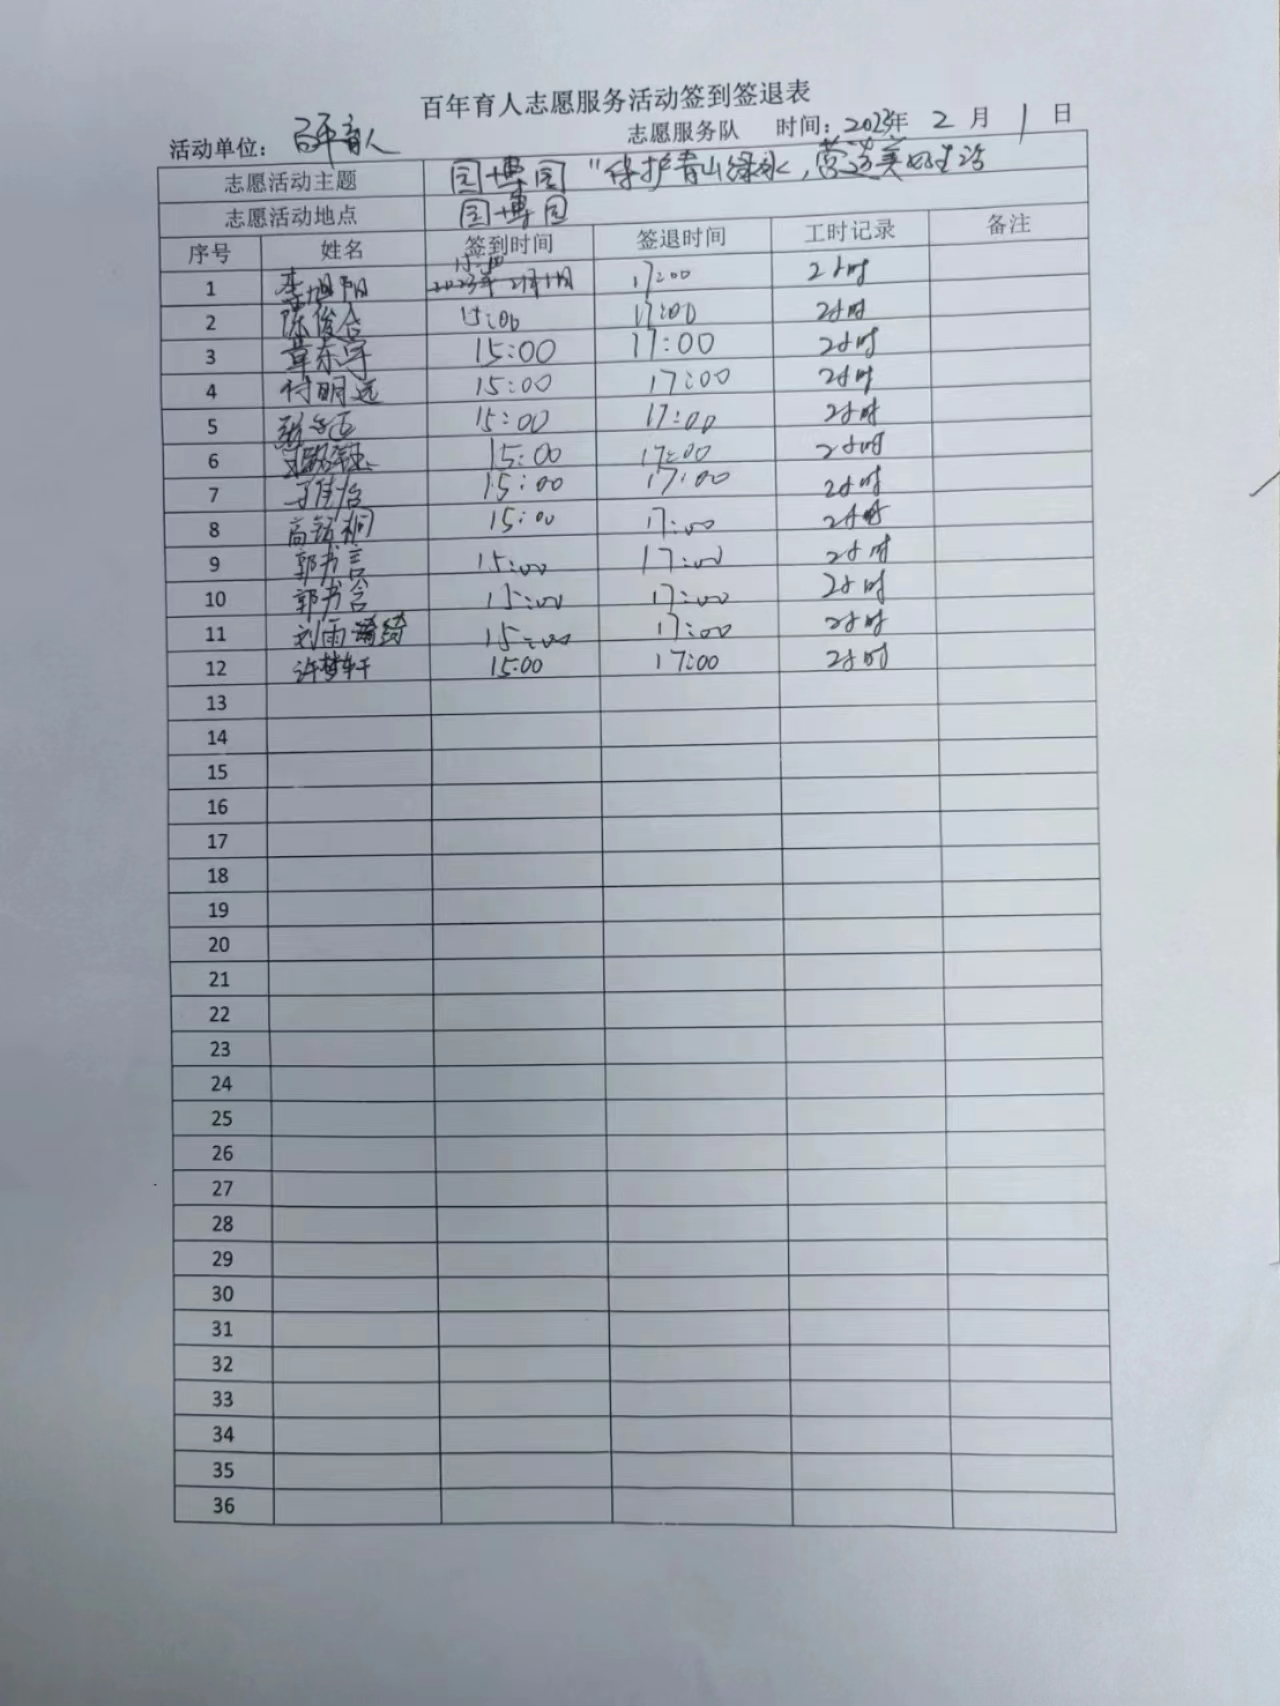 百年育人志愿服务活动签到签退表
活动单位: 百年育人 志愿服务队 时间: 2023年 2 月 1 日
志愿活动主题 园博园 "保护青山绿水,营造美好生活
志愿活动地点 园博园
序号 姓名 签到时间 签退时间 工时记录 备注
1 李旭阳 2023年2月1日 17:00 2小时
2 陈俊合 15:00 17:00 2小时
3 章东宇 15:00 17:00 2小时
4 付明远 15:00 17:00 2小时
5 15:00 17:00 2小时
6 15:00 17:00 2小时
7 于佳怡 15:00 17:00 2小时
8 高铭桐 15:00 17:00 2小时
9 郭书言 15:00 17:00 2小时
10 郭书含 15:00 17:00 2小时
11 刘雨 绮 15:00 17:00 2小时
12 许梦轩 15:00 17:00 2小时
13
14
15
16
17
18
19
20
21
22
23
24
25
26
27
28
29
30
31
32
33
34
35
36